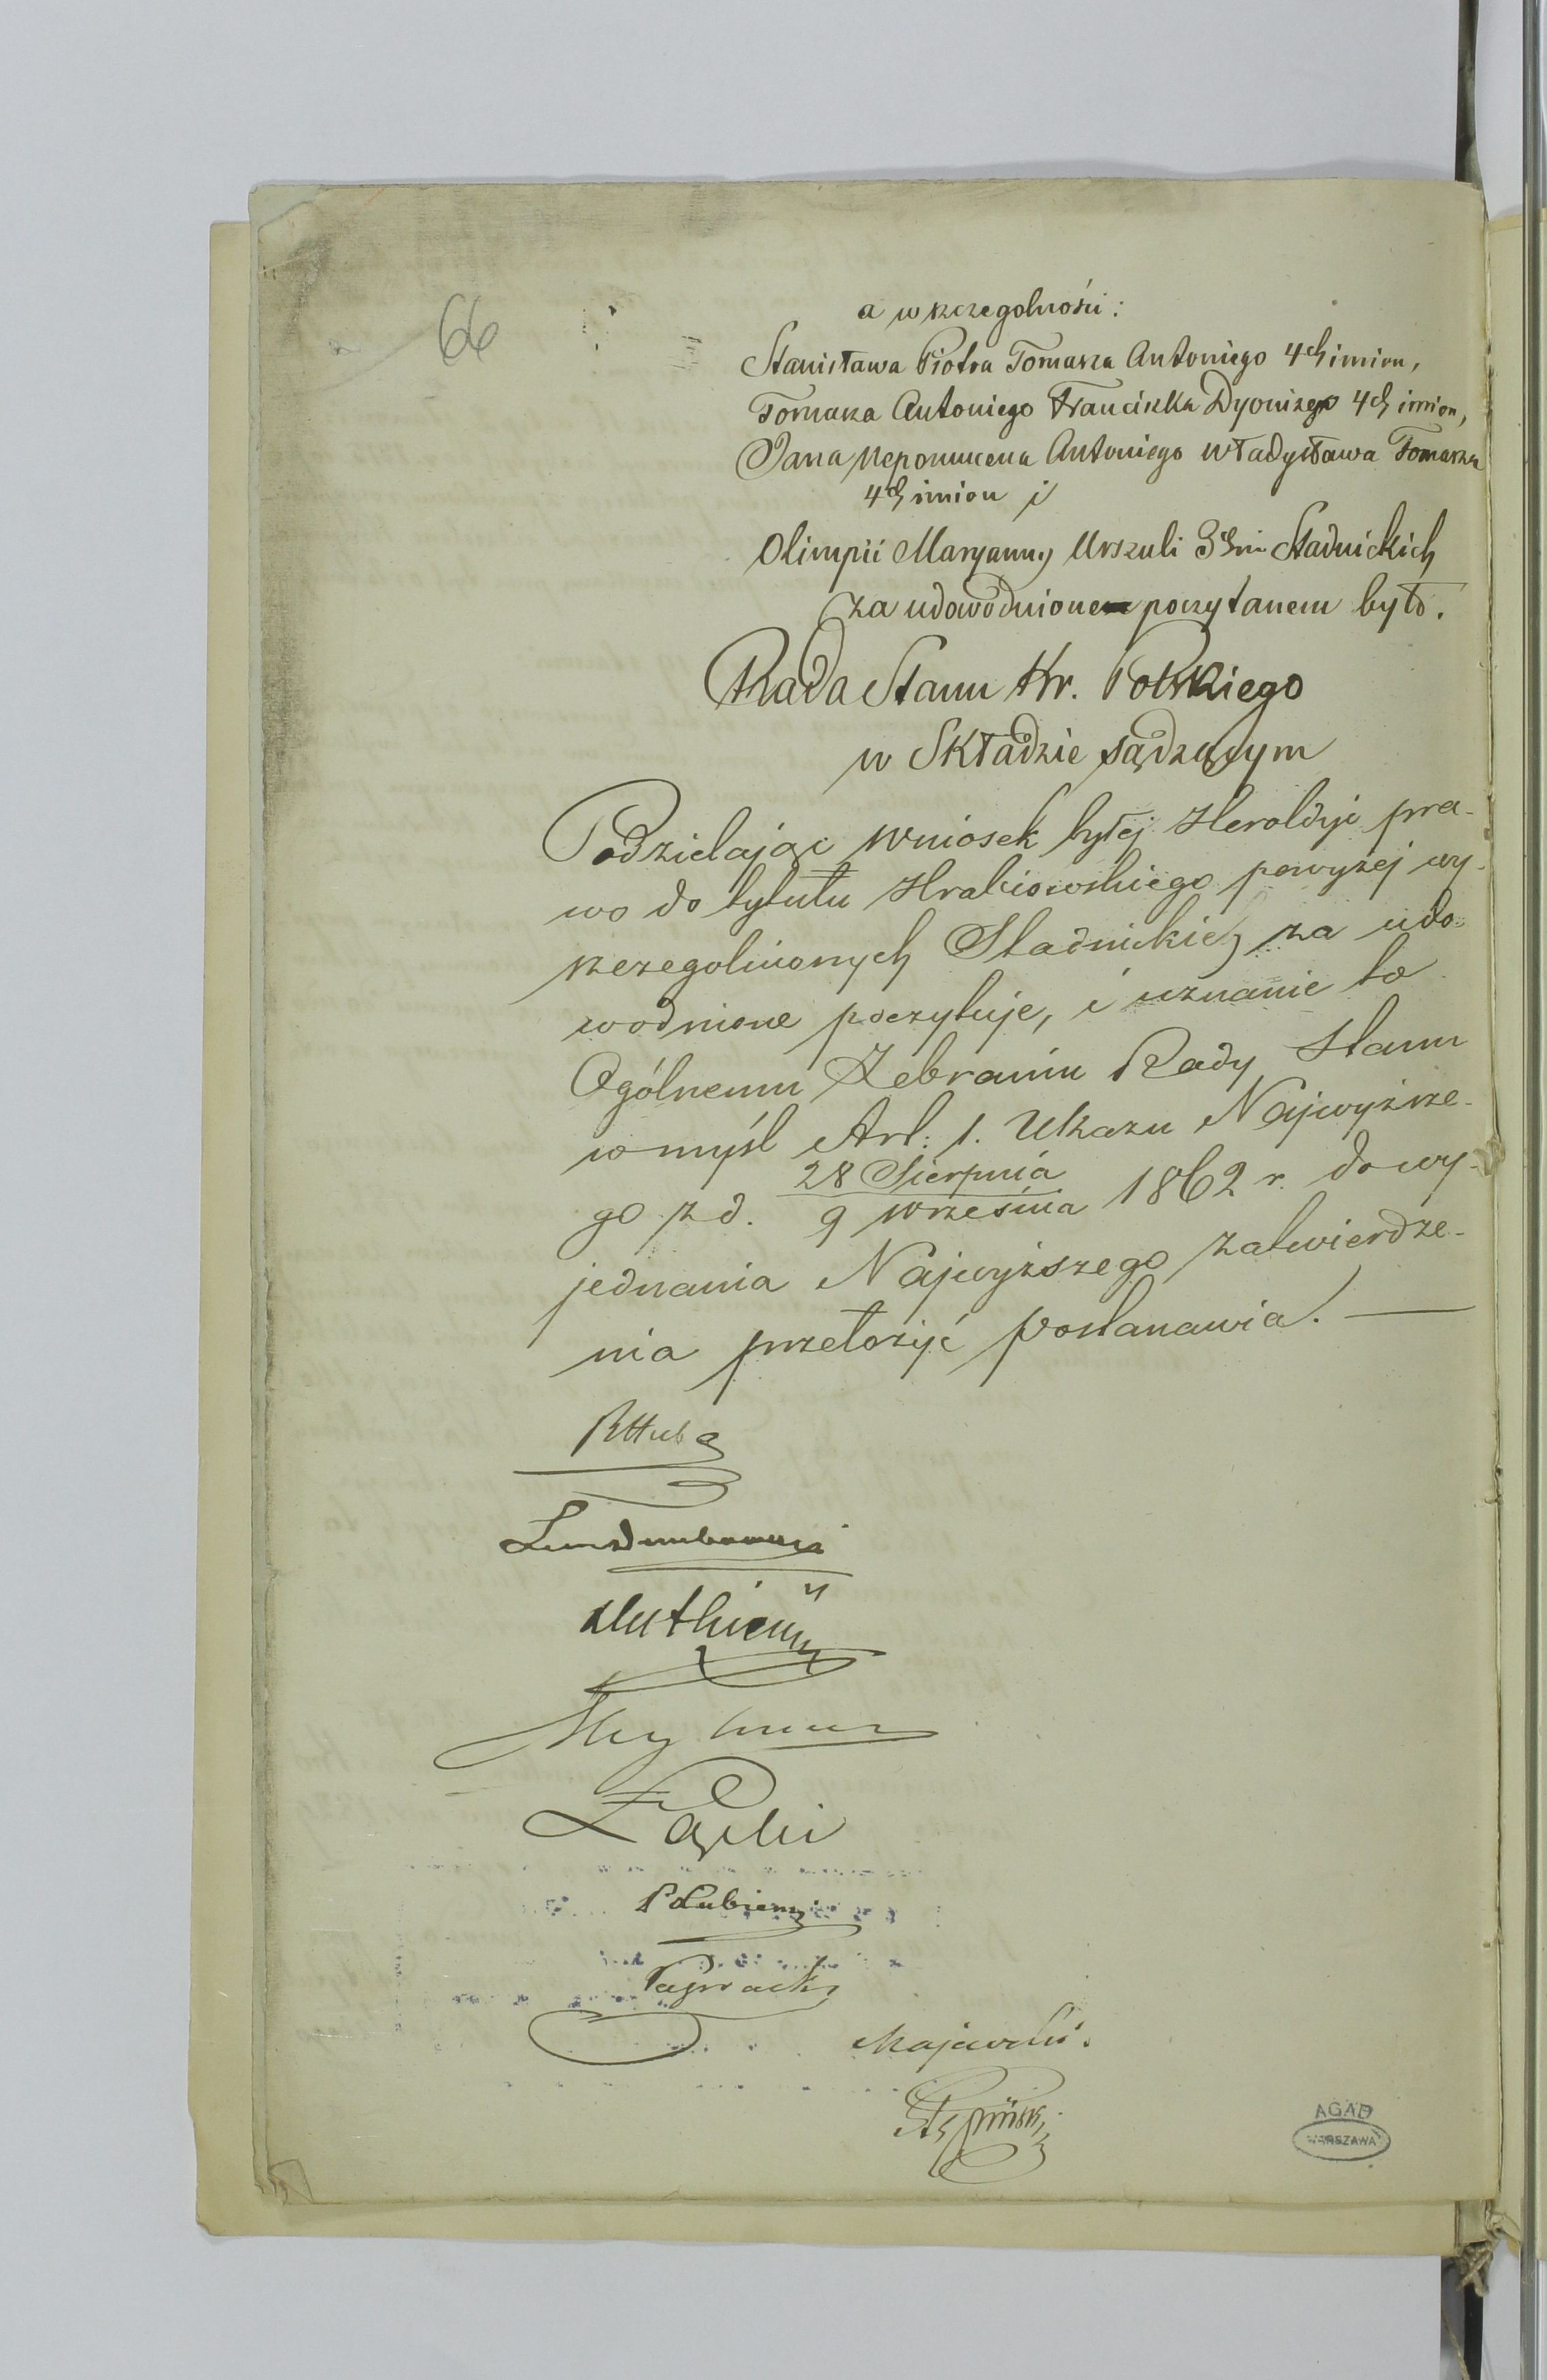 66
a w szczególności:
Stanisława Piotra Tomasza Antoniego 4ch imion,
Tomasza Antoniego Franciszka Dyonizego 4ch imion,
Jana Nepomucena Antoniego Władysława Tomasza
4ch imion i
Olimpii Maryanny Urszuli 3ch im Stadnickich
za udowodnione poczytanem było.
Rada Stanu Kr. Polskiego
w Składzie sądzącym
Podzielając wniosek byłej Heroldyi pra-
wo do tytułu Hrabiowskiego powyżej wy-
szczegolnionych Stadnickich za udo-
wodnione poczytuje, i uznanie to
Ogólnemu Zebraniu Rady Stanu
w myśl Art: 1. Ukazu Najwyższe-
go z d. 28 Sierpnia
9 Września 1862 r. do wy-
jednania Najwyższego zatwierdze-
nia przełożyć postanawia. —
RHube
Łąski
PŁubieński
Majewski.
Stępiński
AGAD
WARSZAWA